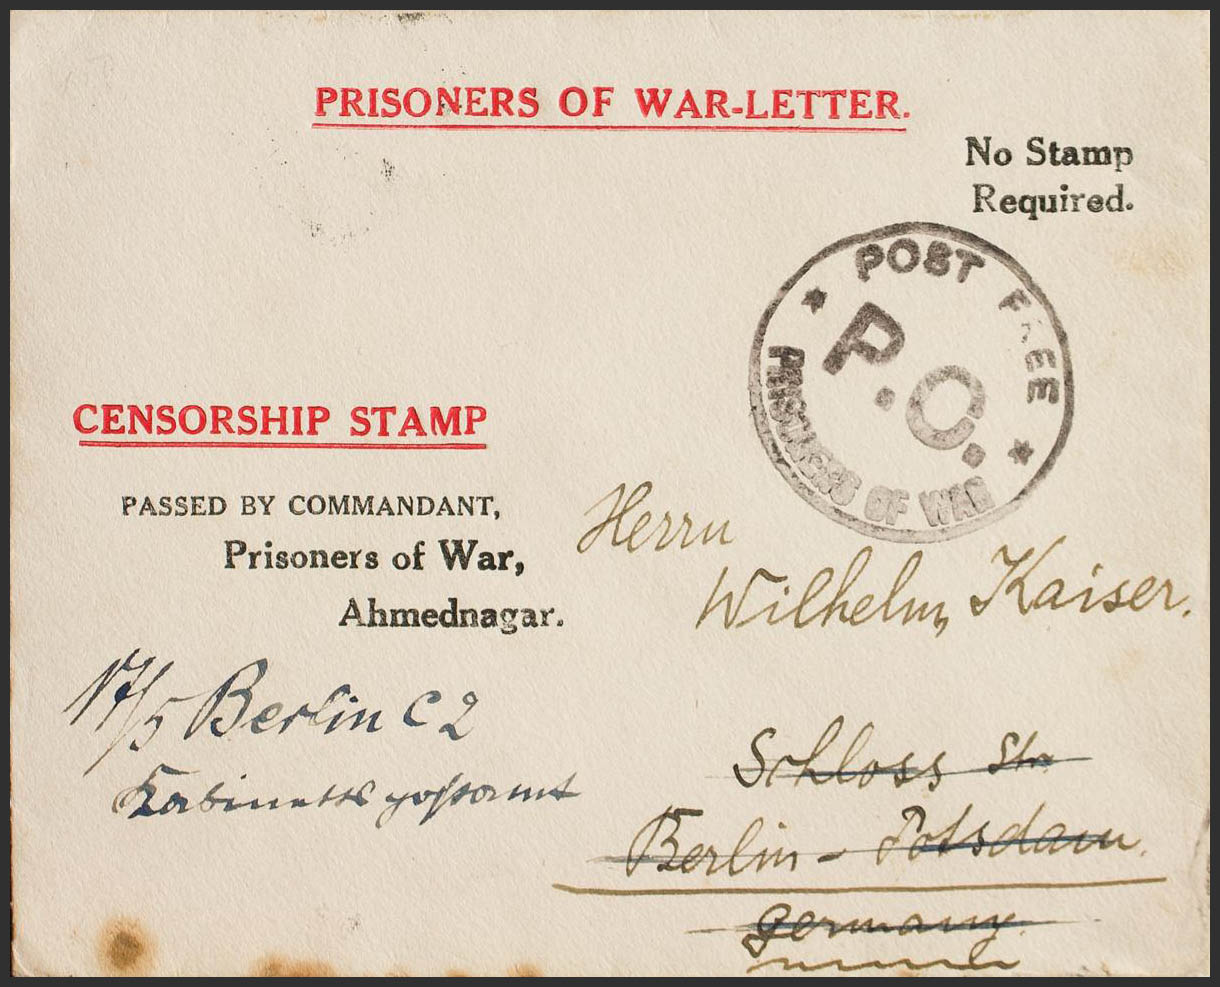 PRISONERS OF WAR-LETTER.
No Stamp
Required.
POST FREE
P.O.
PRISONERS OF WAR
CENSORSHIP STAMP
PASSED BY COMMANDANT,
Prisoners of War,
Ahmednagar.
Herrn
Wilhelm Kaiser.
17/5 Berlin C2
Kabinettspostamt
Schloss Str.
Berlin - Potsdam.
Germany.